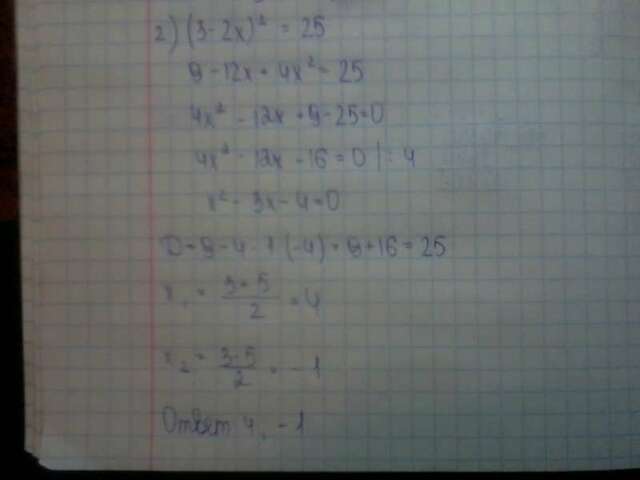 2) (3-2x)² = 25
9-12x+4x²=25
4x²-12x+9-25=0
4x²-12x-16=0 |:4
x²-3x-4=0
D=9-4·1·(-4)=9+16=25
x₁ = (3+5)/2 = 4
x₂ = (3-5)/2 = -1
Ответ 4, -1